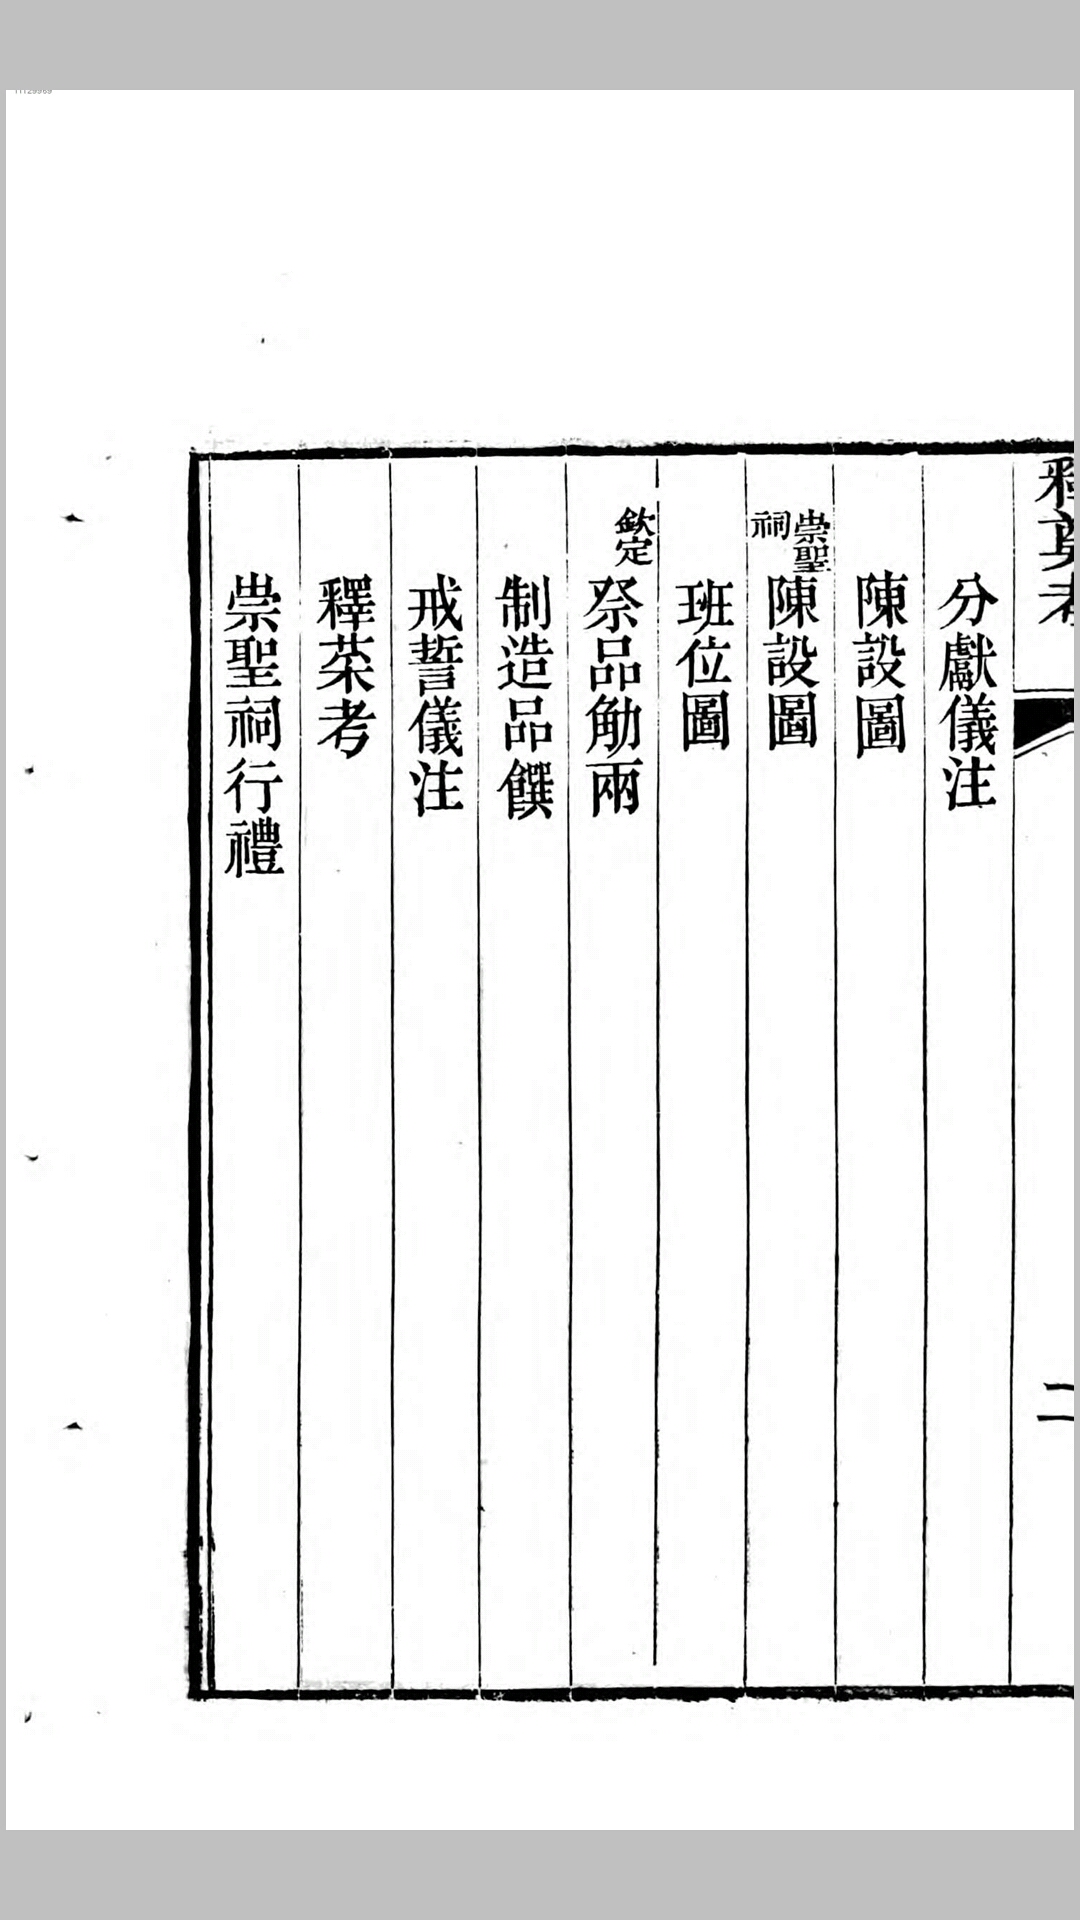 釋奠考
二
分獻儀注
陳設圖
崇聖祠陳設圖
班位圖
欽定祭品觔兩
制造品饌
戒誓儀注
釋菜考
崇聖祠行禮